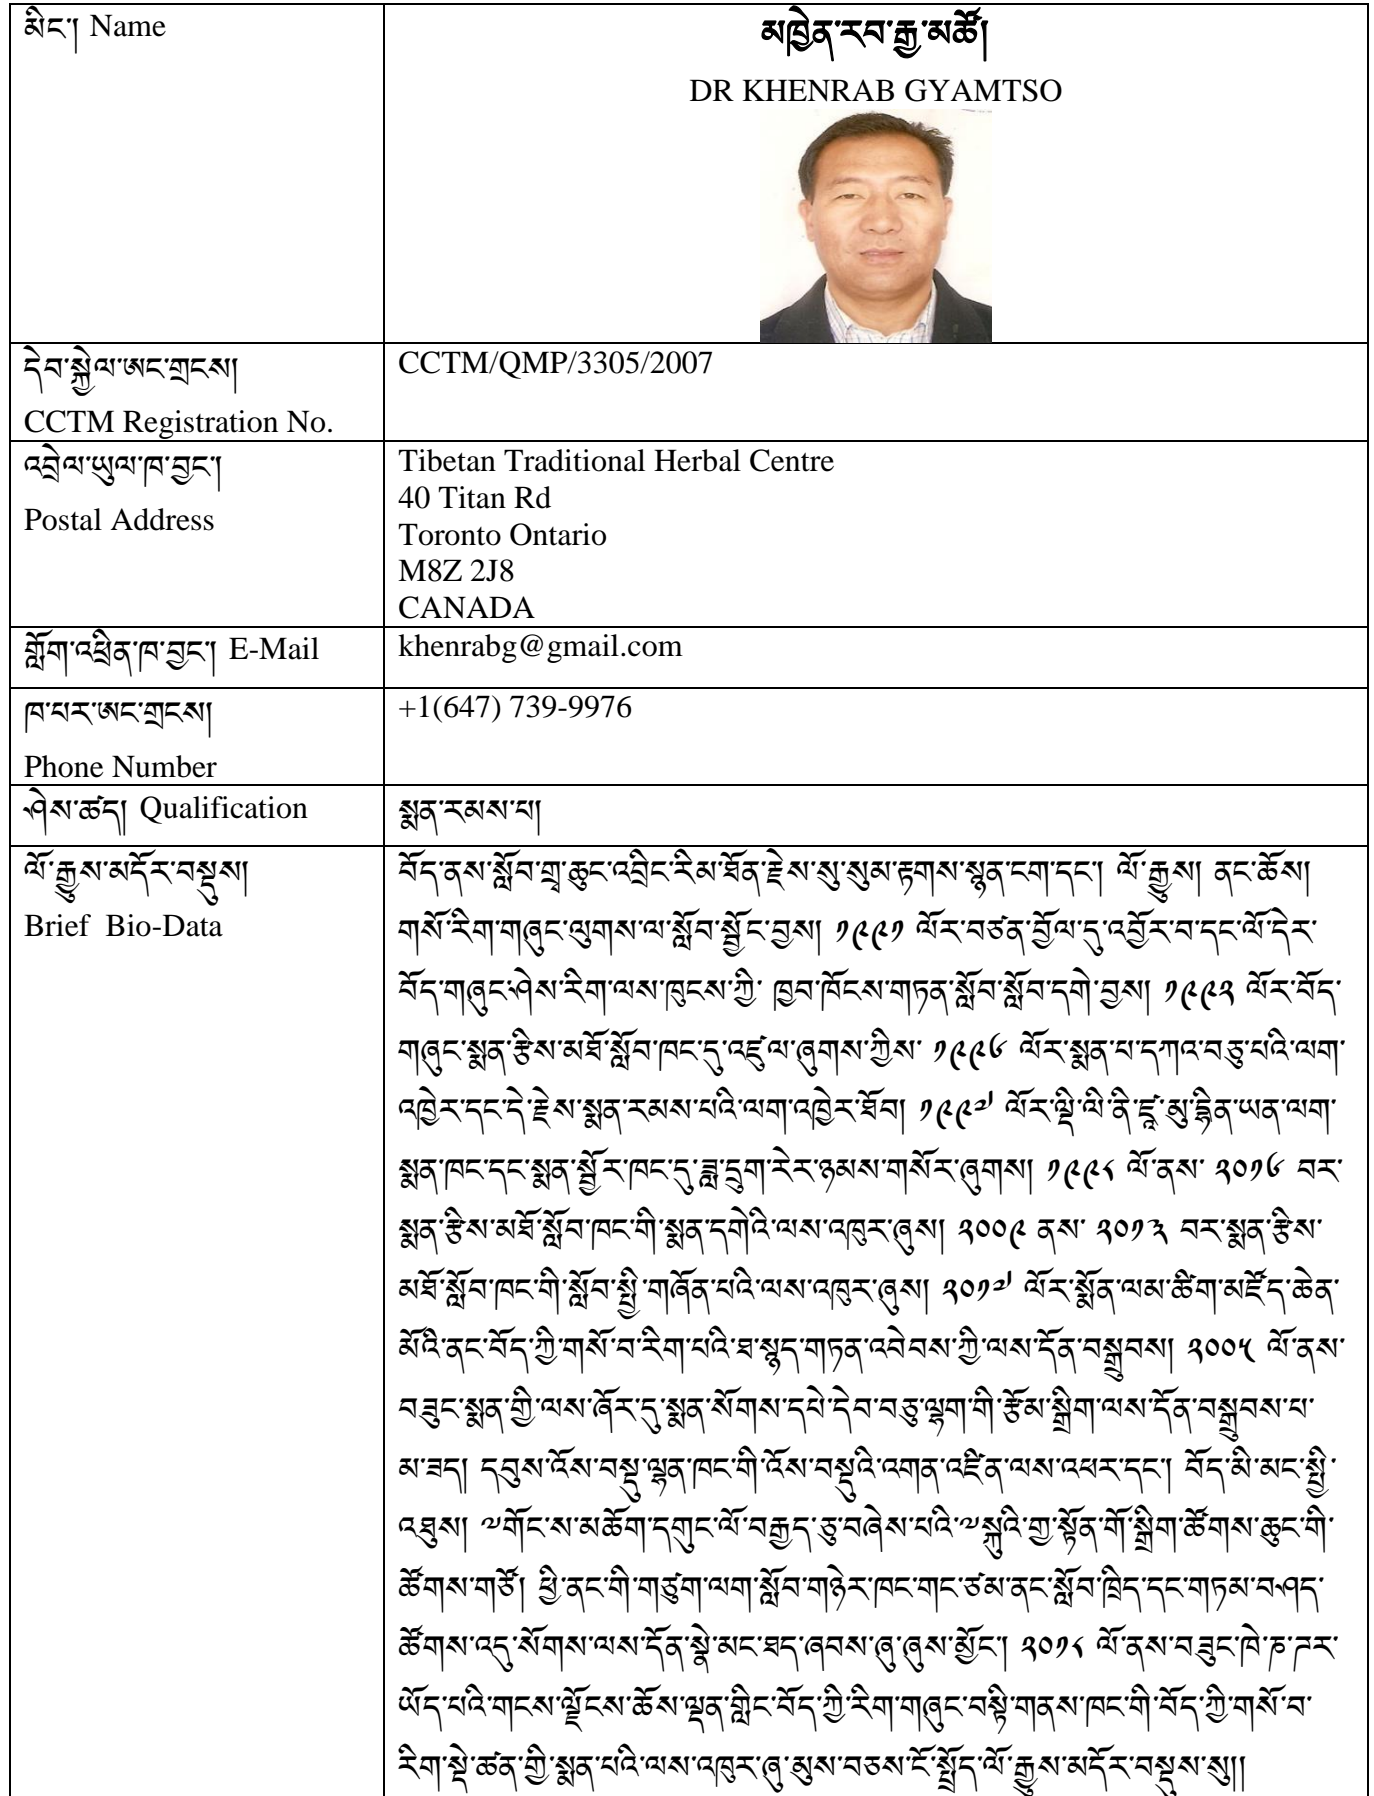 མིང་། Name
མཁྱེན་རབ་རྒྱ་མཚོ།
DR KHENRAB GYAMTSO
དེབ་སྐྱེལ་ཨང་གྲངས།
CCTM Registration No.
CCTM/QMP/3305/2007
འབྲེལ་ཡུལ་ཁ་བྱང་།
Postal Address
Tibetan Traditional Herbal Centre
40 Titan Rd
Toronto Ontario
M8Z 2J8
CANADA
གློག་འཕྲིན་ཁ་བྱང་། E-Mail
khenrabg@gmail.com
ཁ་པར་ཨང་གྲངས།
Phone Number
+1(647) 739-9976
ཤེས་ཚད། Qualification
སྨན་རམས་པ།
ལོ་རྒྱུས་མདོར་བསྡུས།
Brief Bio-Data
བོད་ནས་སློབ་གྲྭ་ཆུང་འབྲིང་རིམ་ཐོན་རྗེས་སུ་སུམ་རྟགས་སྙན་ངག་དང་། ལོ་རྒྱུས། ནང་ཆོས།
གསོ་རིག་གཞུང་ལུགས་ལ་སློབ་སྦྱོང་བྱས། ༡༩༩༡ ལོར་བཙན་བྱོལ་དུ་འབྱོར་བ་དང་ལོ་དེར་
བོད་གཞུང་ཤེས་རིག་ལས་ཁུངས་ཀྱི་ ཁྱབ་ཁོངས་གཏན་སློབ་སློབ་དགེ་བྱས། ༡༩༩༢ ལོར་བོད་
གཞུང་སྨན་རྩིས་མཐོ་སློབ་ཁང་དུ་འཛུལ་ཞུགས་ཀྱིས་ ༡༩༩༦ ལོར་སྨན་པ་དཀའ་བཅུ་པའི་ལག་
འཁྱེར་དང་དེ་རྗེས་སྨན་རམས་པའི་ལག་འཁྱེར་ཐོབ། ༡༩༩༧ ལོར་ལྡི་ལི་ནི་ཛཱ་མུ་ཌྷིན་ཡན་ལག་
སྨན་ཁང་དང་སྨན་སྦྱོར་ཁང་དུ་ཟླ་དྲུག་རེར་ཉམས་གསོར་ཞུགས། ༡༩༩༨ ལོ་ནས་ ༢༠༡༦ བར་
སྨན་རྩིས་མཐོ་སློབ་ཁང་གི་སྨན་དགེའི་ལས་འཁུར་ཞུས། ༢༠༠༩ ནས་ ༢༠༡༣ བར་སྨན་རྩིས་
མཐོ་སློབ་ཁང་གི་སློབ་སྤྱི་གཞོན་པའི་ལས་འཁུར་ཞུས། ༢༠༡༧ ལོར་སྨོན་ལམ་ཚིག་མཛོད་ཆེན་
མོའི་ནང་བོད་ཀྱི་གསོ་བ་རིག་པའི་ཐ་སྙད་གཏན་འབེབས་ཀྱི་ལས་དོན་བསྒྲུབས། ༢༠༠༥ ལོ་ནས་
བཟུང་སྨན་གྱི་ལས་ཞོར་དུ་སྨན་སོགས་དཔེ་དེབ་བཅུ་ལྷག་གི་རྩོམ་སྒྲིག་ལས་དོན་བསྒྲུབས་པ་
མ་ཟད། དབུས་འོས་བསྡུ་ལྷན་ཁང་གི་འོས་བསྡུའི་འགན་འཛིན་ལས་འཕར་དང་། བོད་མི་མང་སྤྱི་
འཐུས། ༸གོང་ས་མཆོག་དགུང་ལོ་བརྒྱད་ཅུ་བཞེས་པའི་༸སྐུའི་གྱ་སྟོན་གོ་སྒྲིག་ཚོགས་ཆུང་གི་
ཚོགས་གཙོ། ཕྱི་ནང་གི་གཙུག་ལག་སློབ་གཉེར་ཁང་གང་ཙམ་ནང་སློབ་ཁྲིད་དང་གཏམ་བཤད་
ཚོགས་འདུ་སོགས་ལས་དོན་སྣེ་མང་ཐད་ཞབས་ཞུ་ཞུས་མྱོང་། ༢༠༡༨ ལོ་ནས་བཟུང་ཁེ་ཎ་ཌར་
ཡོད་པའི་གངས་ལྗོངས་ཆོས་ལྡན་གླིང་བོད་ཀྱི་རིག་གཞུང་བསྟི་གནས་ཁང་གི་བོད་ཀྱི་གསོ་བ་
རིག་སྡེ་ཚན་གྱི་སྨན་པའི་ལས་འཁུར་ཞུ་མུས་བཅས་ངོ་སྤྲོད་ལོ་རྒྱུས་མདོར་བསྡུས་སུ།།